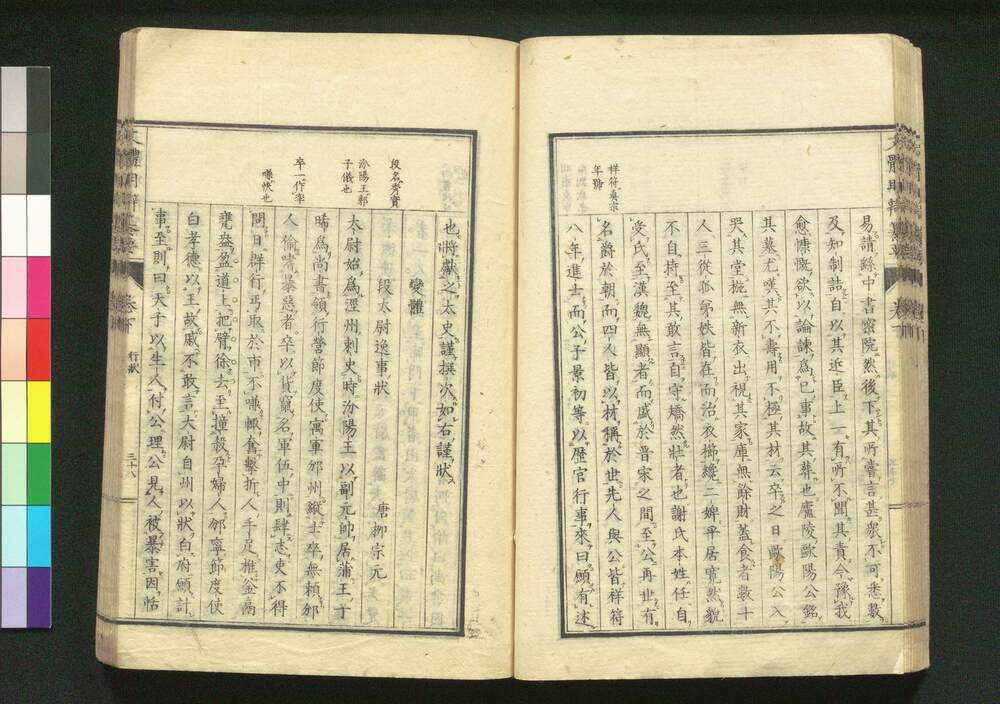 祥符真宗
年號
易請絲中書密院然後下其所嘗言甚衆不可悉數
及知制誥自以其近臣上一有所不聞其責今豫我
愈慷慨欲以論諫爲己事故其葬也廬陵歐陽公銘
其墓尤嘆其不壽用不極其材云卒之日歐陽公入
哭其堂椸無新衣出視其家庫無餘財蓋食者數十
人三從孤弟姪皆在而治衣櫛纔二婢平居寬然貌
不自持至其敢言自守矯然壯者也謝氏本姓任自
受氏至漢魏無顯者而盛於晉宋之間至公再世有
名爵於朝而四人皆以材稱於世先人與公皆祥符
八年進士而公子景初等以歷官行事來曰願有述
也將獻之太史謹撰次如右謹狀
變體
段太尉逸事狀 唐柳宗元
段名秀實
汾陽王郭
子儀也
卒一作率
嗛快也
太尉始爲涇州刺史時汾陽王以副元帥居蒲王子
晞爲尚書領行營節度使寓軍邠州縱士卒無賴邠
人偷嗜暴惡者卒以貨竄名軍伍中則肆志吏不得
問日群行丐取於市不嗛輒奮擊折人手足椎釜鬲
甕盎盈道上把臂徐去至撞殺孕婦人邠寧節度使
白孝德以王故戚不敢言太尉自州以狀白府願計
事至則曰天子以生人付公理公見人被暴害因恬
文體明辯粹要 卷下 行狀 三十八